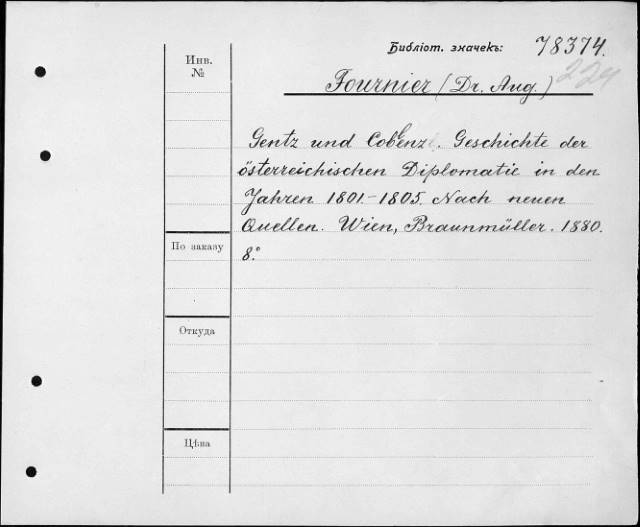 Библіот. значекъ: 78374.
Инв.
№
224
Fournier (Dr. Aug.)
Gentz und Cobenzl. Geschichte der
österreichischen Diplomatie in den
Jahren 1801.-1805. Nach neuen
Quellen. Wien, Braunmüller. 1880.
8.°
По заказу
Откуда
Цѣна